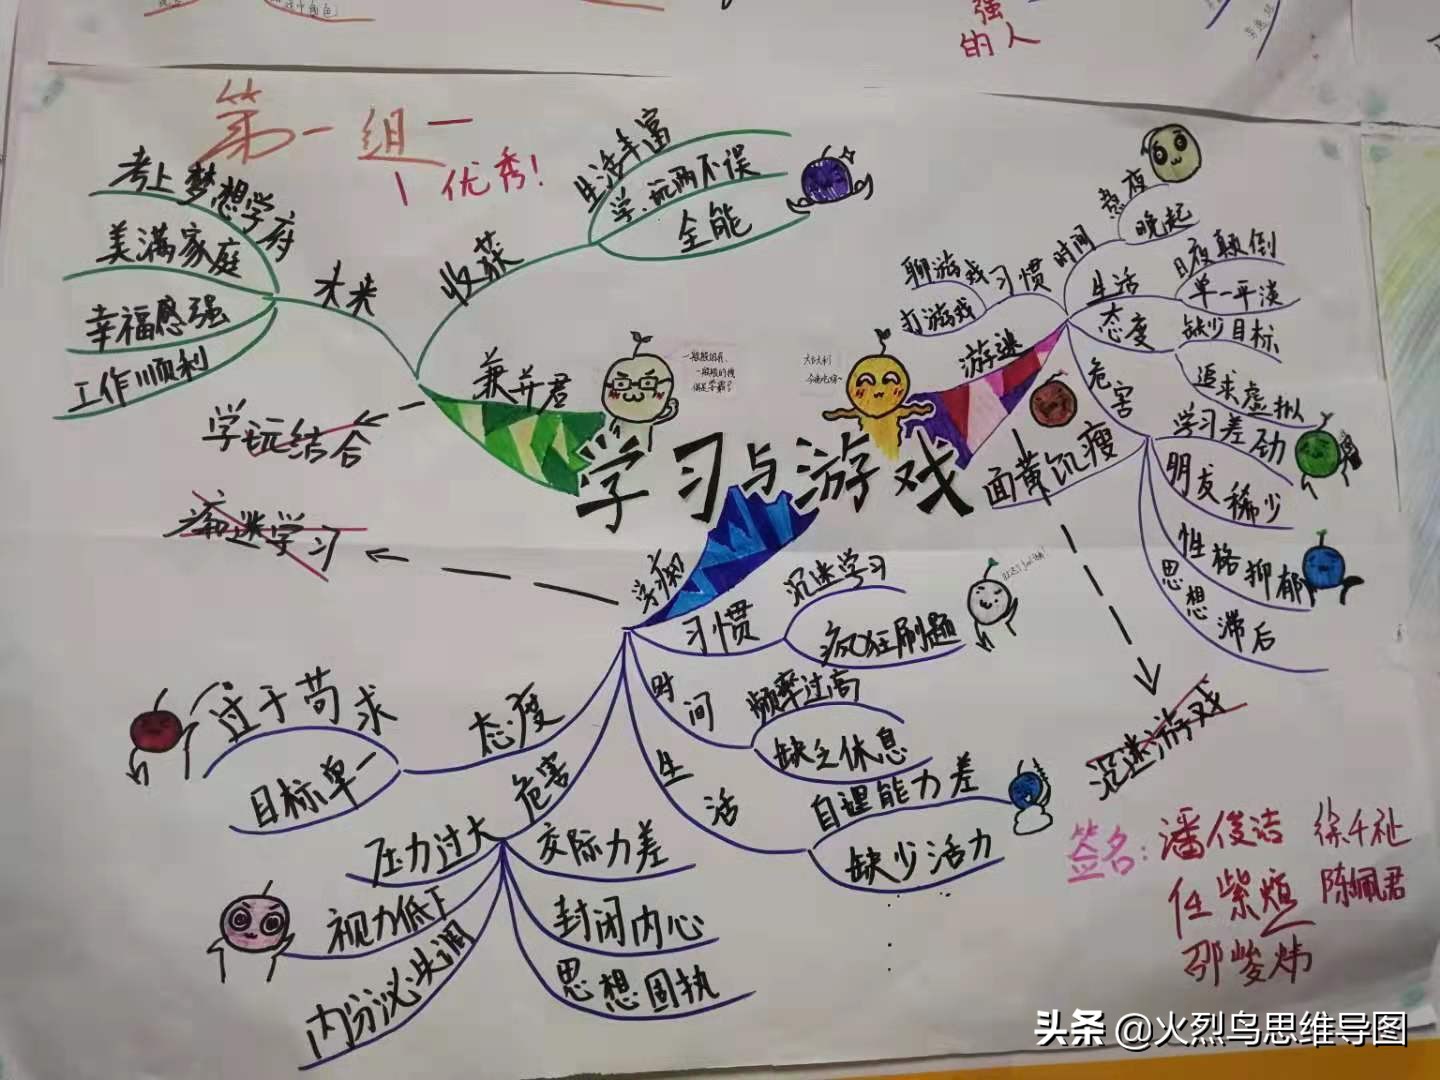 强
的人
第一组
优秀!
考上梦想学府
美满家庭
幸福感强
工作顺利
未来
收获
生活丰富
学、玩两不误
全能
兼并君
学玩结合
学习与游戏
游迷
习惯
聊游戏
打游戏
时间
熬夜
晚起
生活
日夜颠倒
单一平淡
态度
缺少目标
追求虚拟
危害
面黄肌瘦
学习差劲
朋友稀少
性格抑郁
思想滞后
沉迷游戏
学痴
沉迷学习
习惯
沉迷学习
疯狂刷题
时间
频率过高
缺乏休息
生活
自理能力差
缺少活力
态度
过于苛求
目标单一
危害
压力过大
视力低下
内分泌失调
交际力差
封闭内心
思想固执
签名:潘俊洁 徐千祉
任紫烜 陈佩君
邵峻炜
头条 @火烈鸟思维导图